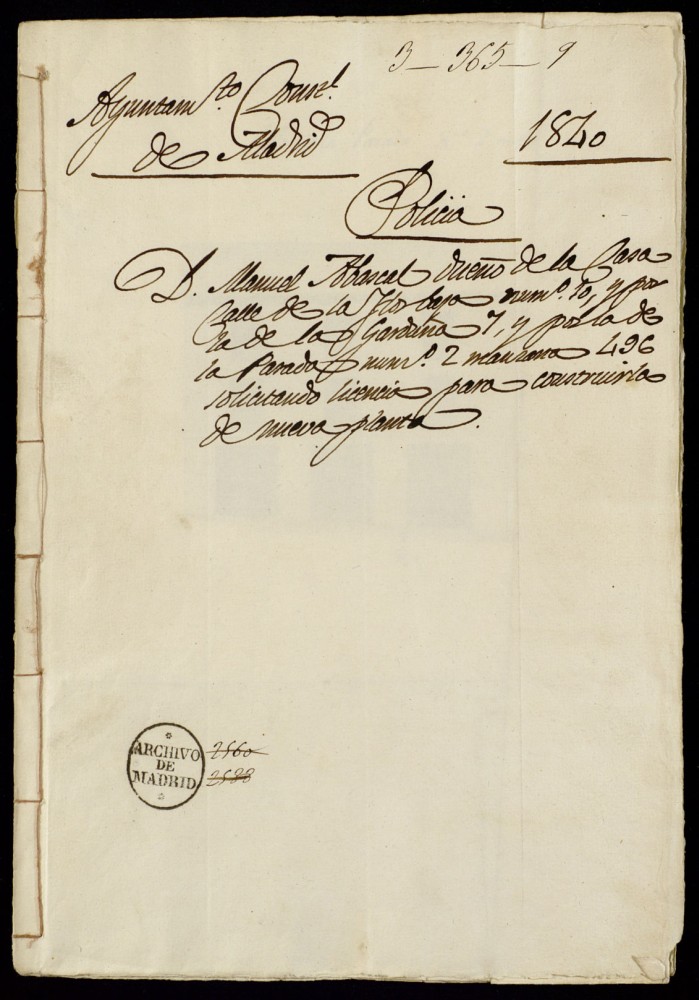 3-365-9
Ayuntam.to Const.l
de Madrid
1840
Policia
D. Manuel Abascal dueño de la Casa
Calle de la Flor baja num.º 10, y por
la de la Garduña 7, y por la de
la Parada num.º 2 manzana 496
solicitando licencia para construirla
de nueva planta.
ARCHIVO
DE
MADRID
2560